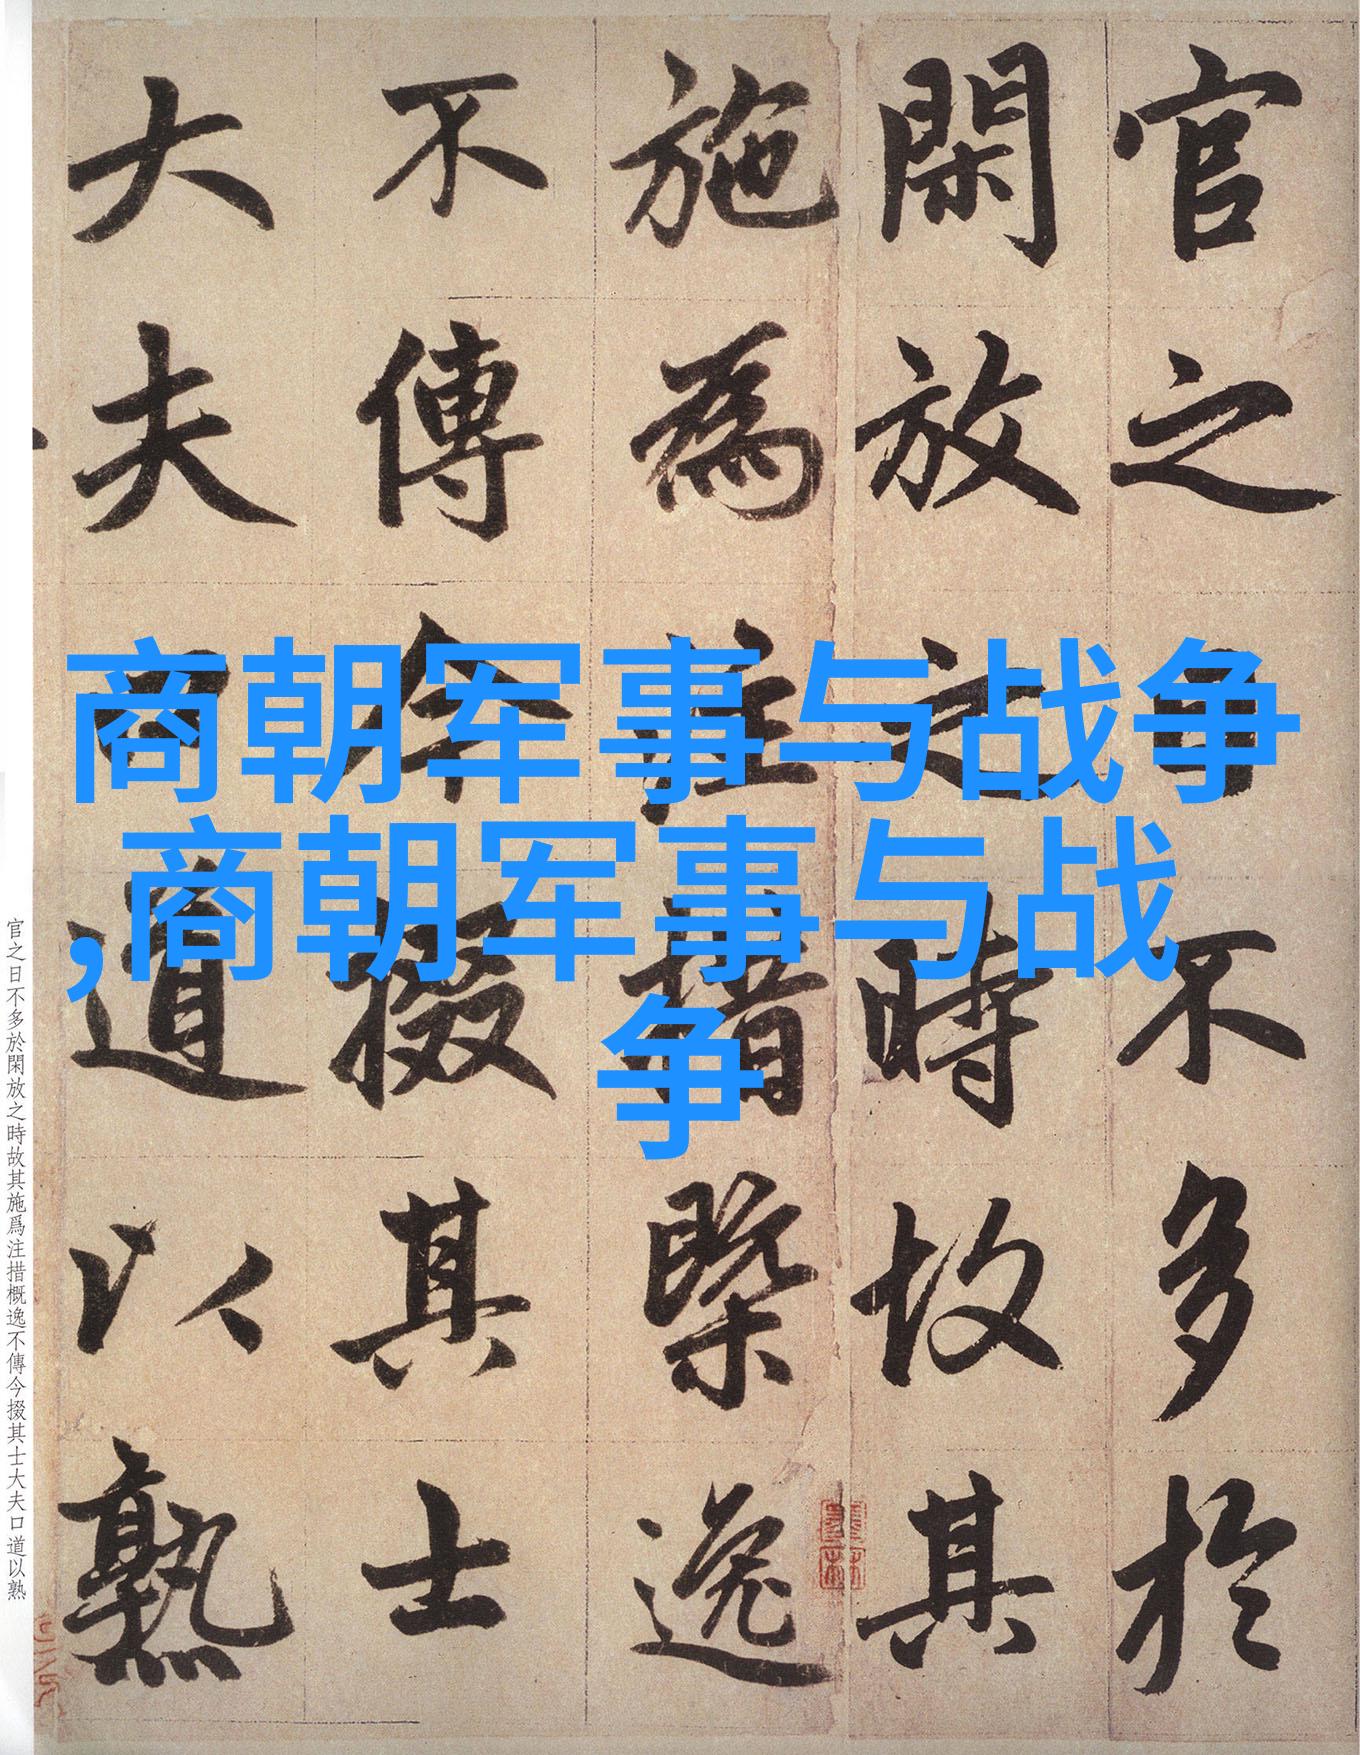 官之日不多於
閑放之時故其
施為注措槩逸
不傳今掇其士
大夫口道以熟
商朝军事与战争
,商朝军事与战
争
官之日不多於閑放之時故其施爲注措概逸不傳今掇其士大夫口道以熟